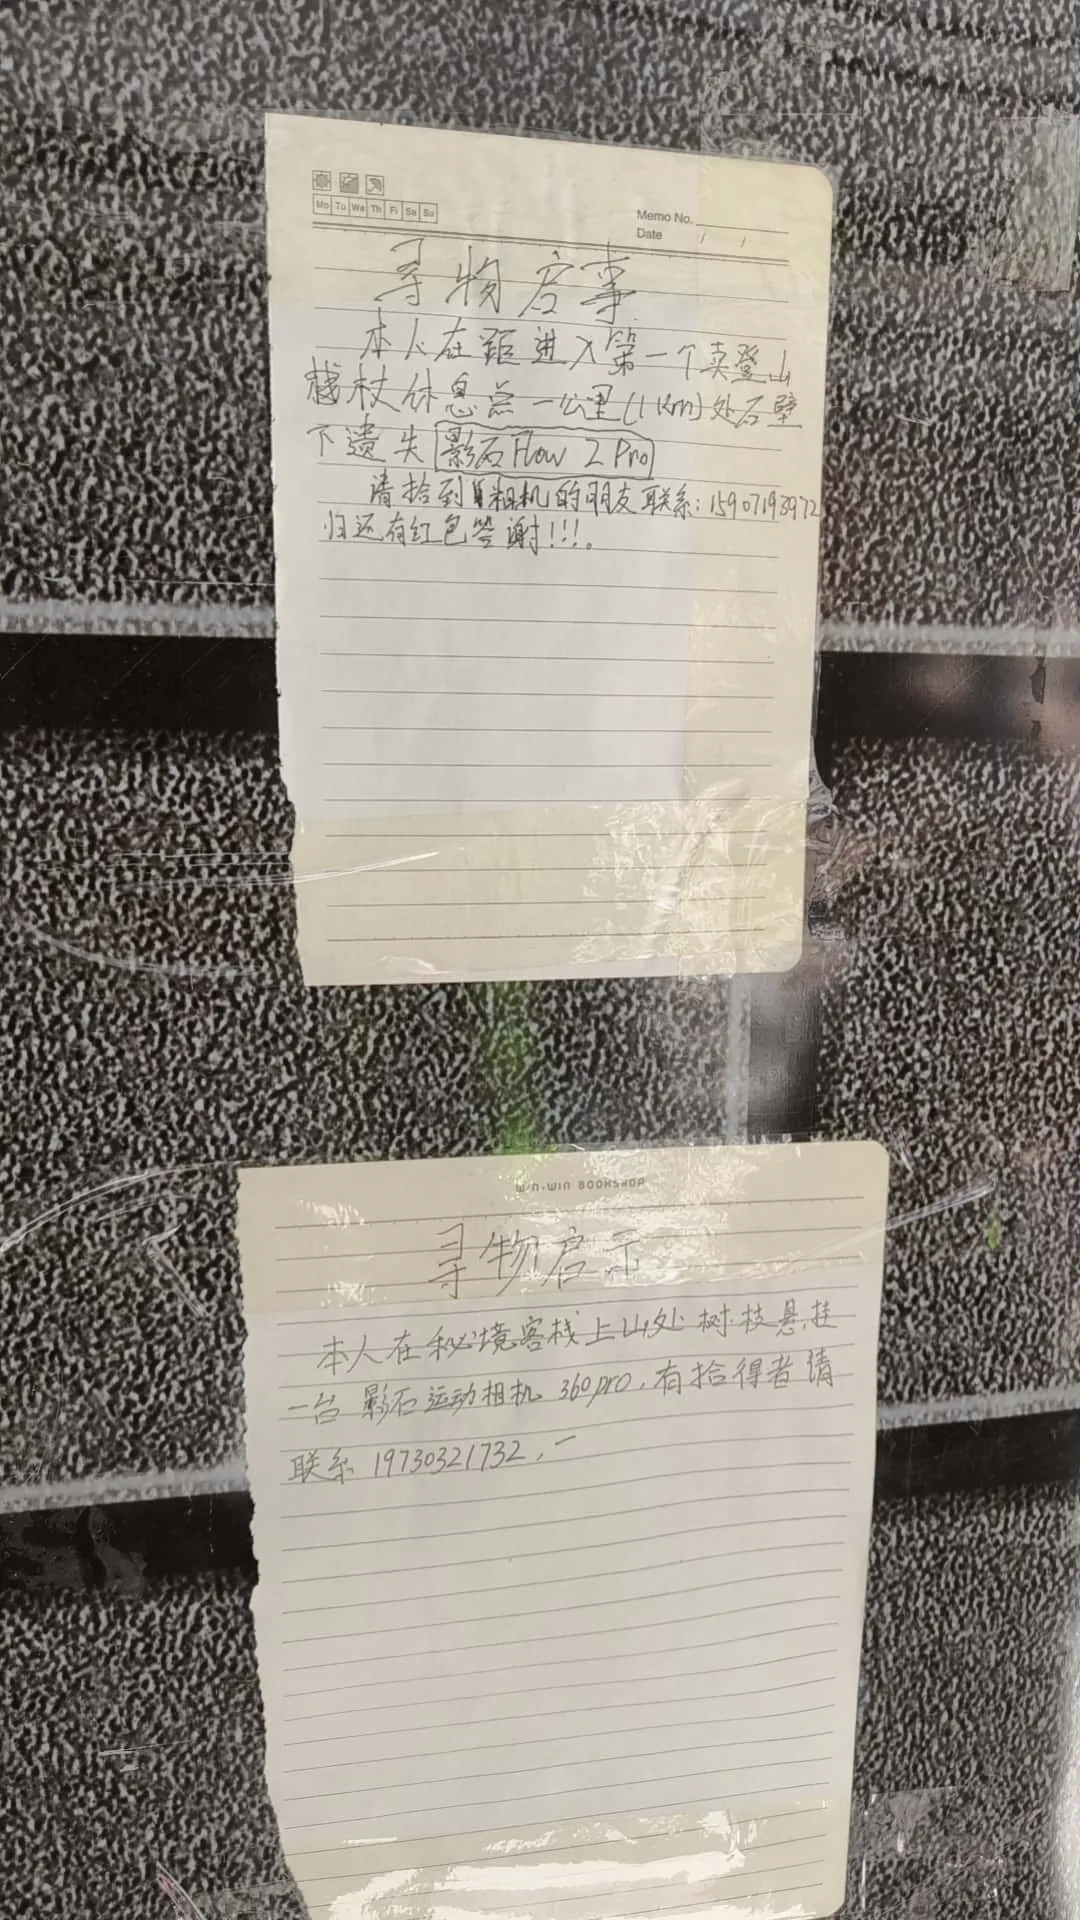 Mo Tu We Th Fr Sa Su
Memo No.
Date / /
寻物启事
本人在距进入第一个卖登山
栈杖休息点一公里(1Km)处石壁
下遗失影石Flow 2 Pro
请拾到相机的朋友联系:15907193972
归还有红包答谢!!!。
WIN-WIN BOOKSHOP
寻物启示
本人在秘境客栈上山处树枝悬挂
一台影石运动相机 360pro,有拾得者请
联系 19730321732,一